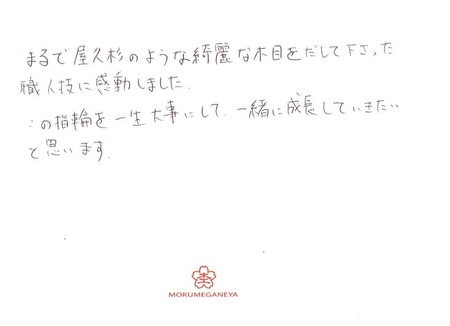 まるで屋久杉のような綺麗な木目をだして下さった
職人技に感動しました.
この指輪を一生大事にして.一緒に成長していきたい
と思います.
MOKUMEGANEYA